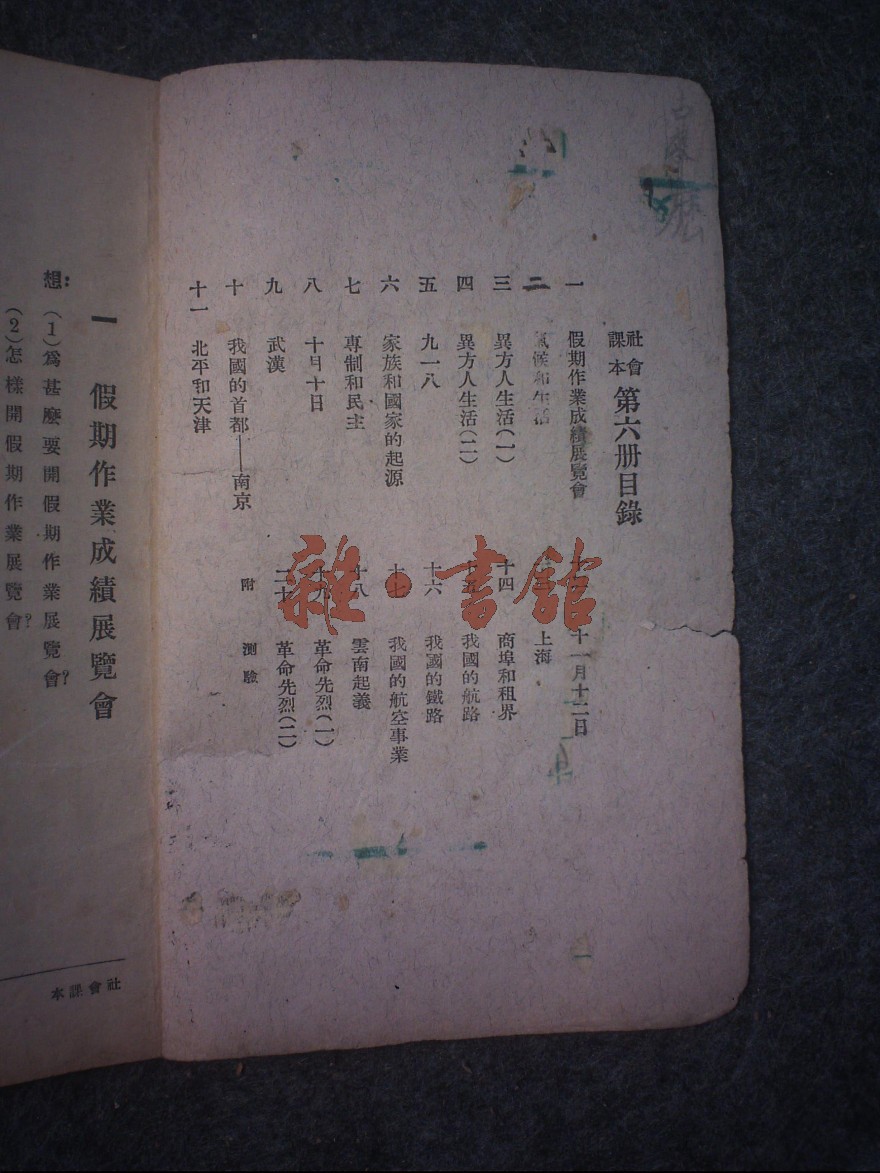 社會
課本
第六册目錄
一 假期作業成績展覽會
二 氣候和生活
三 異方人生活(一)
四 異方人生活(二)
五 九一八
六 家族和國家的起源
七 專制和民主
八 十月十日
九 武漢
十 我國的首都——南京
十一 北平和天津
十一月十二日
上海
十四 商埠和租界
十五 我國的航路
十六 我國的鐵路
十七 我國的航空事業
十八 雲南起義
十九 革命先烈(一)
二十 革命先烈(二)
附 測驗
雜·書館
一 假期作業成績展覽會
想:(1)爲甚麽要開假期作業展覽會?
(2)怎樣開假期作業展覽會?
社會課本